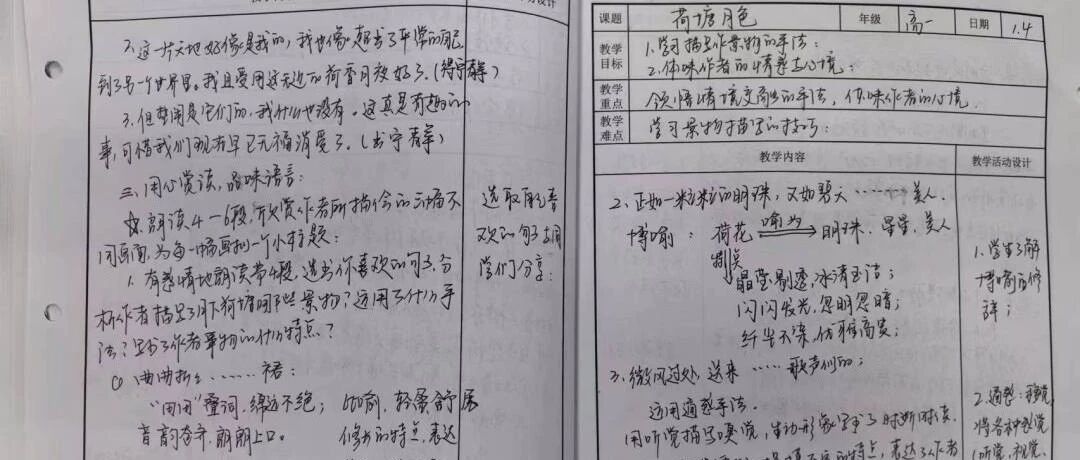 2.这一片天地好像是我的,我也像超出了平常的自己
到了另一个世界里。我且受用这无边的荷香月色好了。(得宁静)
3.但热闹是它们的,我什么也没有。这真是有趣的
事,可惜我们现在早已无福消受了。(出宁静)
三.用心赏读,品味语言:
朗读4—6段,欣赏作者所描绘的三幅不
同画面,为每一幅画拟一个小标题:
1.有感情地朗读第4段,选出你喜欢的句子,分
析作者描写了月下荷塘哪些景物?运用了什么手
法?写出了作者事物的什么特点?
①曲曲折折……裙:
"田田"叠词,绵延不绝; 轻盈舒展
音韵和齐,朗朗上口。 修长的特点,表达
选取自己喜
欢的句子与同
学们分享:
课题 荷塘月色 年级 高一 日期 1.4
教学目标 1.学习描写景物的手法:
2.体味作者的情感与心境:
教学重点 领悟情境交融的手法,体味作者的心境.
教学难点 学习景物描写的技巧:
教学内容 教学活动设计
2.正如一粒粒的明珠,又如碧天……美人.
博喻: 荷花 喻为 明珠、星星、美人
晶莹剔透,冰清玉洁;
闪闪发光,忽明忽暗;
纤尘不染,优雅高贵;
3.微风过处,送来……歌声似的;
运用通感手法.
用听觉描写嗅觉,生动形象写出了时断时续,
的特点,表达了作者
1.学生了解
博喻的修
辞;
2.通感:
将各种感觉
(听觉,视觉、